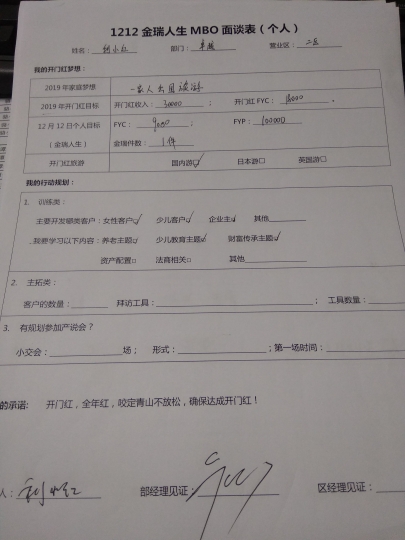 1212 金瑞人生 MBO 面谈表（个人）
姓名： 部门： 营业区：二区
我的开门红梦想：
2019 年家庭梦想 一家人出国旅游
2019 年开门红目标 开门红收入：30000 开门红 FYC：18000
12 月 12 日个人目标（金瑞人生） FYC：9000 FYP：100000
金瑞件数：1件
开门红旅游 国内游☑ 日本游□ 英国游□
我的行动规划：
1. 训练类：
主要开发哪类客户：女性客户☑ 少儿客户☑ 企业主☑ 其他
我要学习以下内容：养老主题☑ 少儿教育主题☑ 财富传承主题☑
资产配置□ 法商相关□ 其他
2. 主拓类：
客户的数量： 拜访工具： ； 工具数量：
3. 有规划参加产说会？
小交会： 场； 形式： ；第一场时间：
的承诺： 开门红，全年红，咬定青山不放松，确保达成开门红！
人： 部经理见证： 区经理见证：